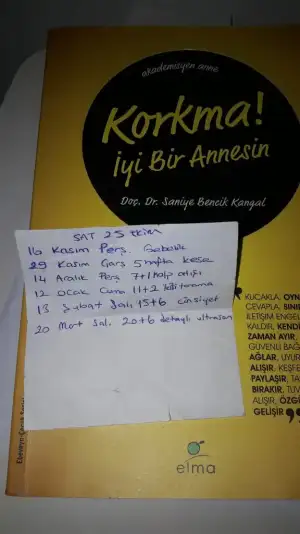 akademisyen anne
Korkma!
İyi Bir Annesin
Doç. Dr. Saniye Bencik Kangal
SAT 25 Ekim
16 Kasım Perş. Gebelik
29 Kasım Çarş 5 hafta kese
14 Aralık Perş 7+1 kalp atışı
12 Ocak Cuma 11+2 ikili tarama
13 Şubat Salı 15+6 cinsiyet
20 Mart Salı 20+6 detaylı ultrason
KUCAKLA, OYN
CEVAPLA, SINI
İLETİŞİM ENGEL
KALDIR, KENDİ
ZAMAN AYIR.
GÜVENLİ BAĞ
AĞLAR, UYUR
ALIŞIR, KEŞFE
PAYLAŞIR, TA
BIRAKIR, TUV
ALIŞIR, ÖZGÜ
GELİŞİR
elma